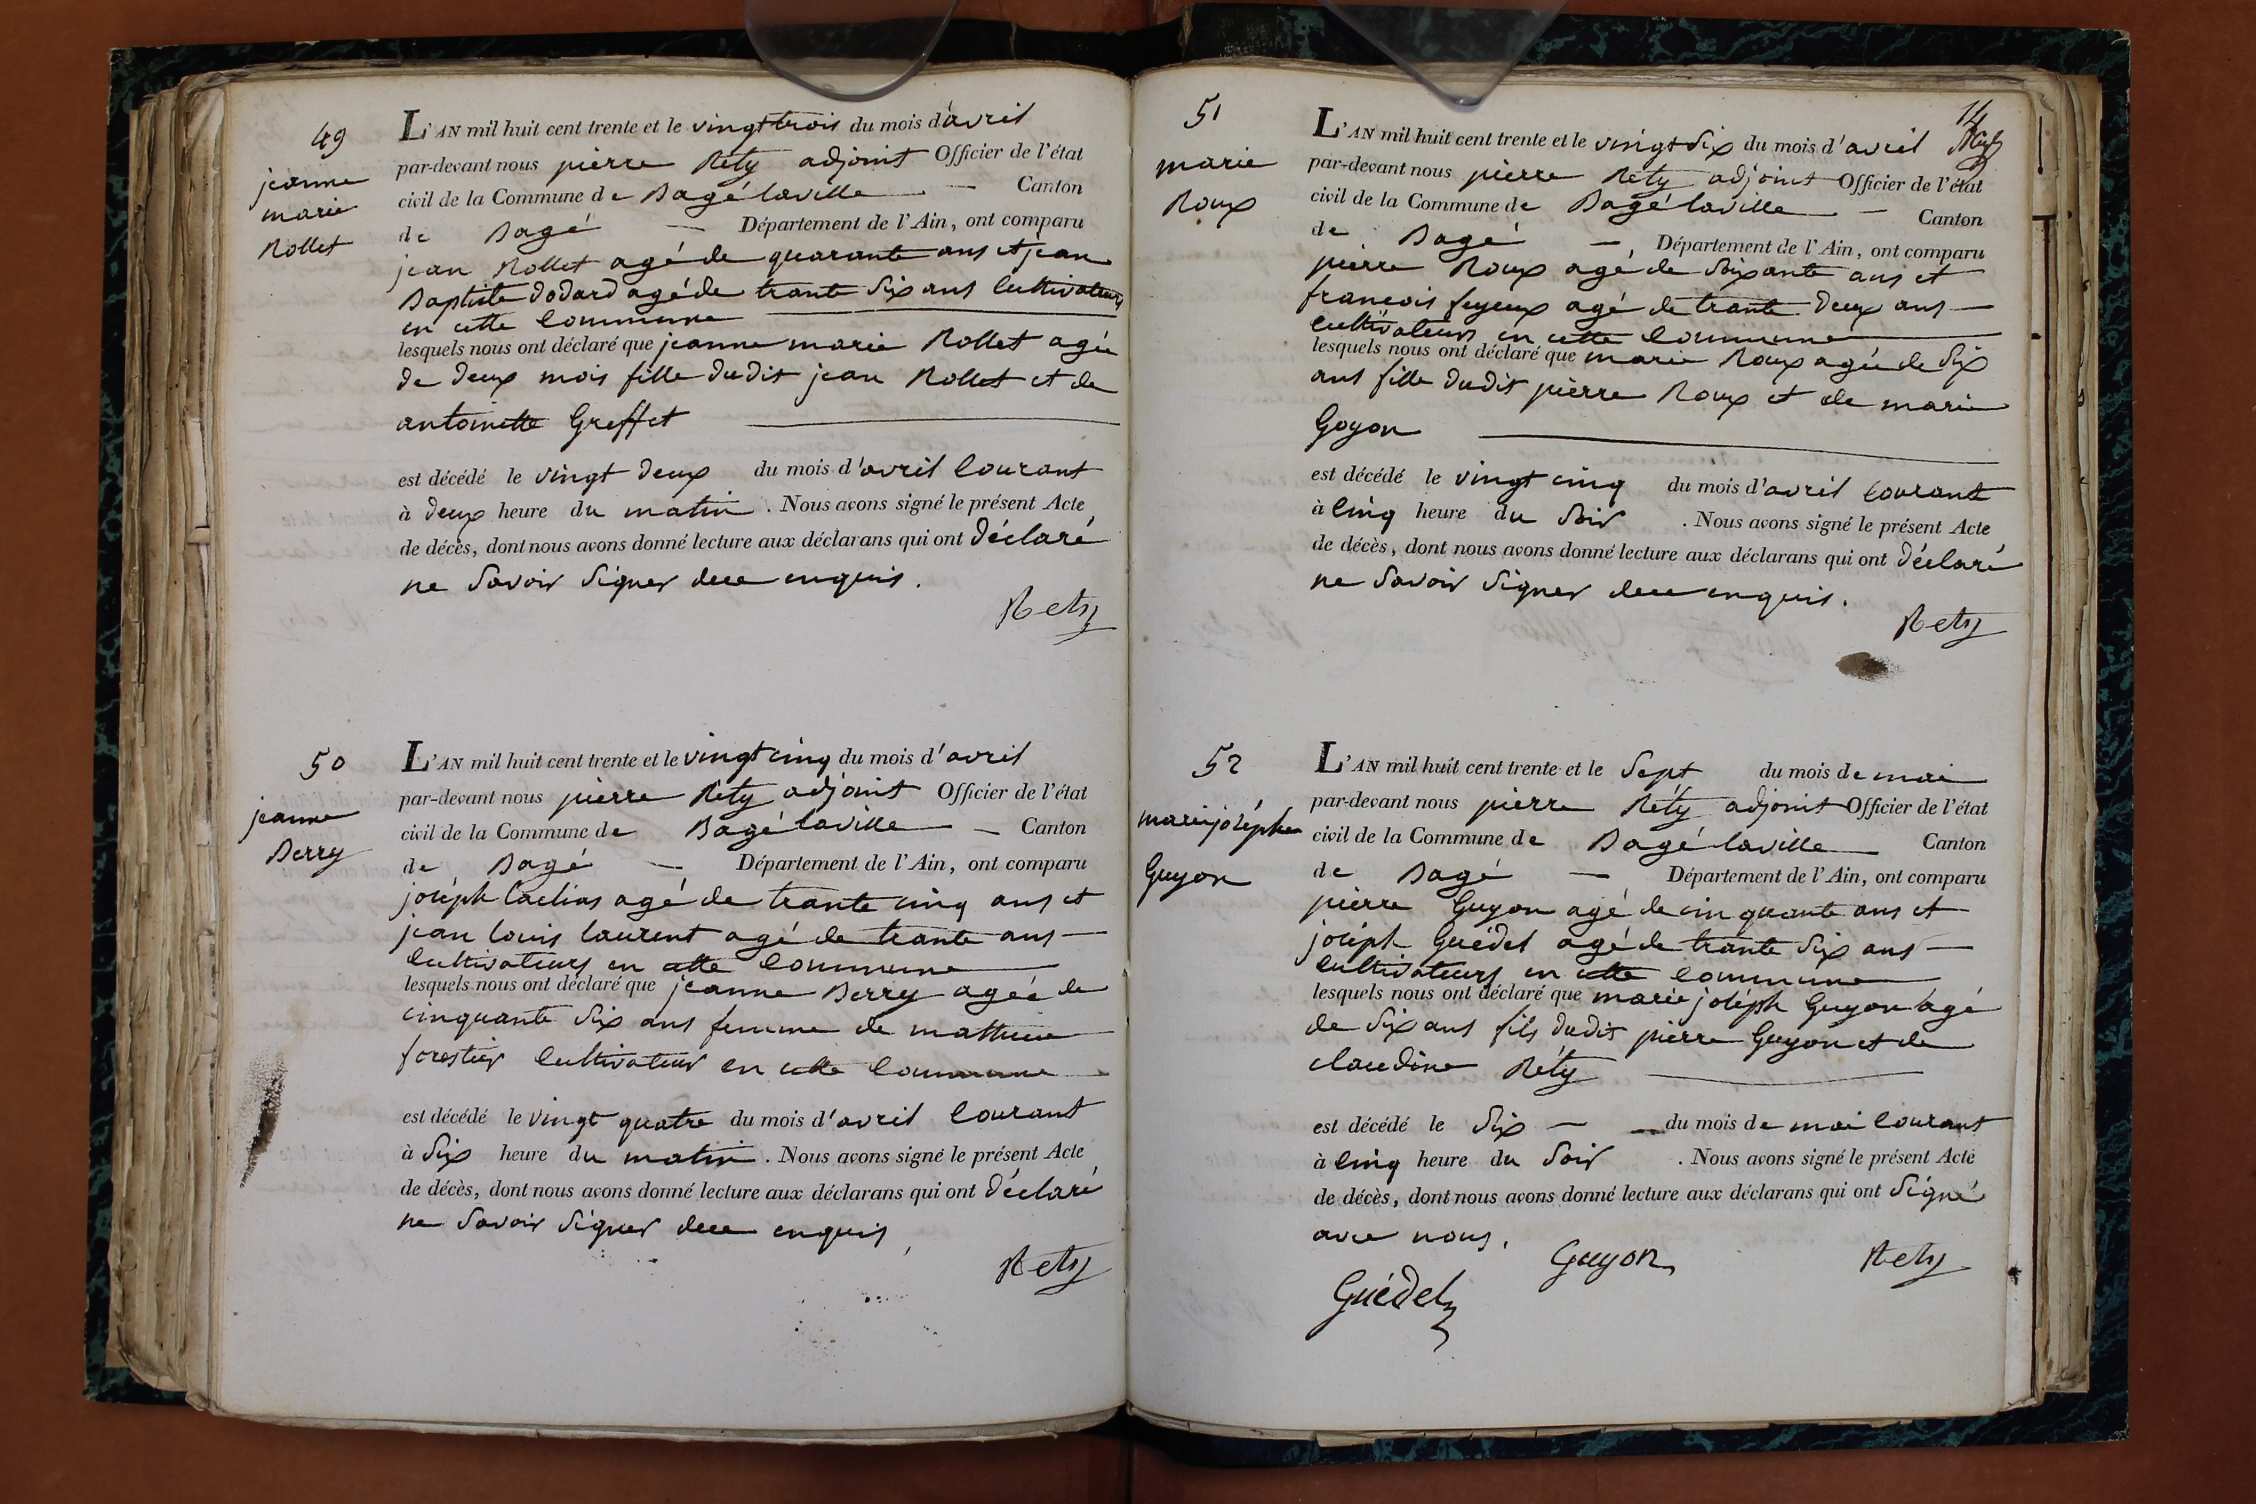 49
jeanne
marie
Rollet
L'AN mil huit cent trente et le vingt trois du mois d'avril
par-devant nous pierre Réty adjoint Officier de l'état
civil de la Commune de Bagé laville — Canton
de Bagé — Département de l'Ain, ont comparu
jean Rollet agé de quarante ans et jean
Baptiste dodard agé de trante six ans Cultivateurs
en cette Commune
lesquels nous ont déclaré que jeanne marie Rollet agée
de deux mois fille dudit jean Rollet et de
antoinette Greffet
est décédé le vingt deux du mois d'avril Courant
à deux heure du matin. Nous avons signé le présent Acte
de décès, dont nous avons donné lecture aux déclarans qui ont déclaré
ne savoir signer de ce enquis.
Rety
50
jeanne
Berry
L'AN mil huit cent trente et le vingt cinq du mois d'avril
par-devant nous pierre Réty adjoint Officier de l'état
civil de la Commune de Bagé laville — Canton
de Bagé — Département de l'Ain, ont comparu
joséph Caclias agé de trante cinq ans et
jean louis laurent agé de trante ans —
Cultivateurs en cette Commune
lesquels nous ont déclaré que jeanne Berry agée de
cinquante six ans femme de mathieu
forestier Cultivateur en cette Commune
est décédé le vingt quatre du mois d'avril Courant
à six heure du matin. Nous avons signé le présent Acte
de décès, dont nous avons donné lecture aux déclarans qui ont déclaré
ne savoir signer de ce enquis
Rety
14
51
marie
Roux
L'AN mil huit cent trente et le vingt six du mois d'avril
par-devant nous pierre Réty adjoint Officier de l'état
civil de la Commune de Bagé laville — Canton
de Bagé — Département de l'Ain, ont comparu
pierre Roux agé de soixante ans et
francois feyeux agé de trante deux ans —
Cultivateurs en cette Commune
lesquels nous ont déclaré que marie Roux agée de six
ans fille dudit pierre Roux et de marie
Goyon
est décédé le vingt cinq du mois d'avril Courant
à Cinq heure du soir. Nous avons signé le présent Acte
de décès, dont nous avons donné lecture aux déclarans qui ont déclaré
ne savoir signer de ce enquis.
Rety
52
marie joséph
Guyon
L'AN mil huit cent trente et le sept du mois de mai
par-devant nous pierre Réty adjoint Officier de l'état
civil de la Commune de Bagé laville Canton
de Bagé — Département de l'Ain, ont comparu
pierre Guyon agé de cinquante ans et
joséph Guédel agé de trante six ans —
Cultivateurs en cette Commune
lesquels nous ont déclaré que marie joséph Guyon agé
de six ans fils dudit pierre Guyon et de
claudine Réty
est décédé le six — du mois de mai Courant
à Cinq heure du soir. Nous avons signé le présent Acte
de décès, dont nous avons donné lecture aux déclarans qui ont signé
avec nous.
Guyon
Rety
Guédel